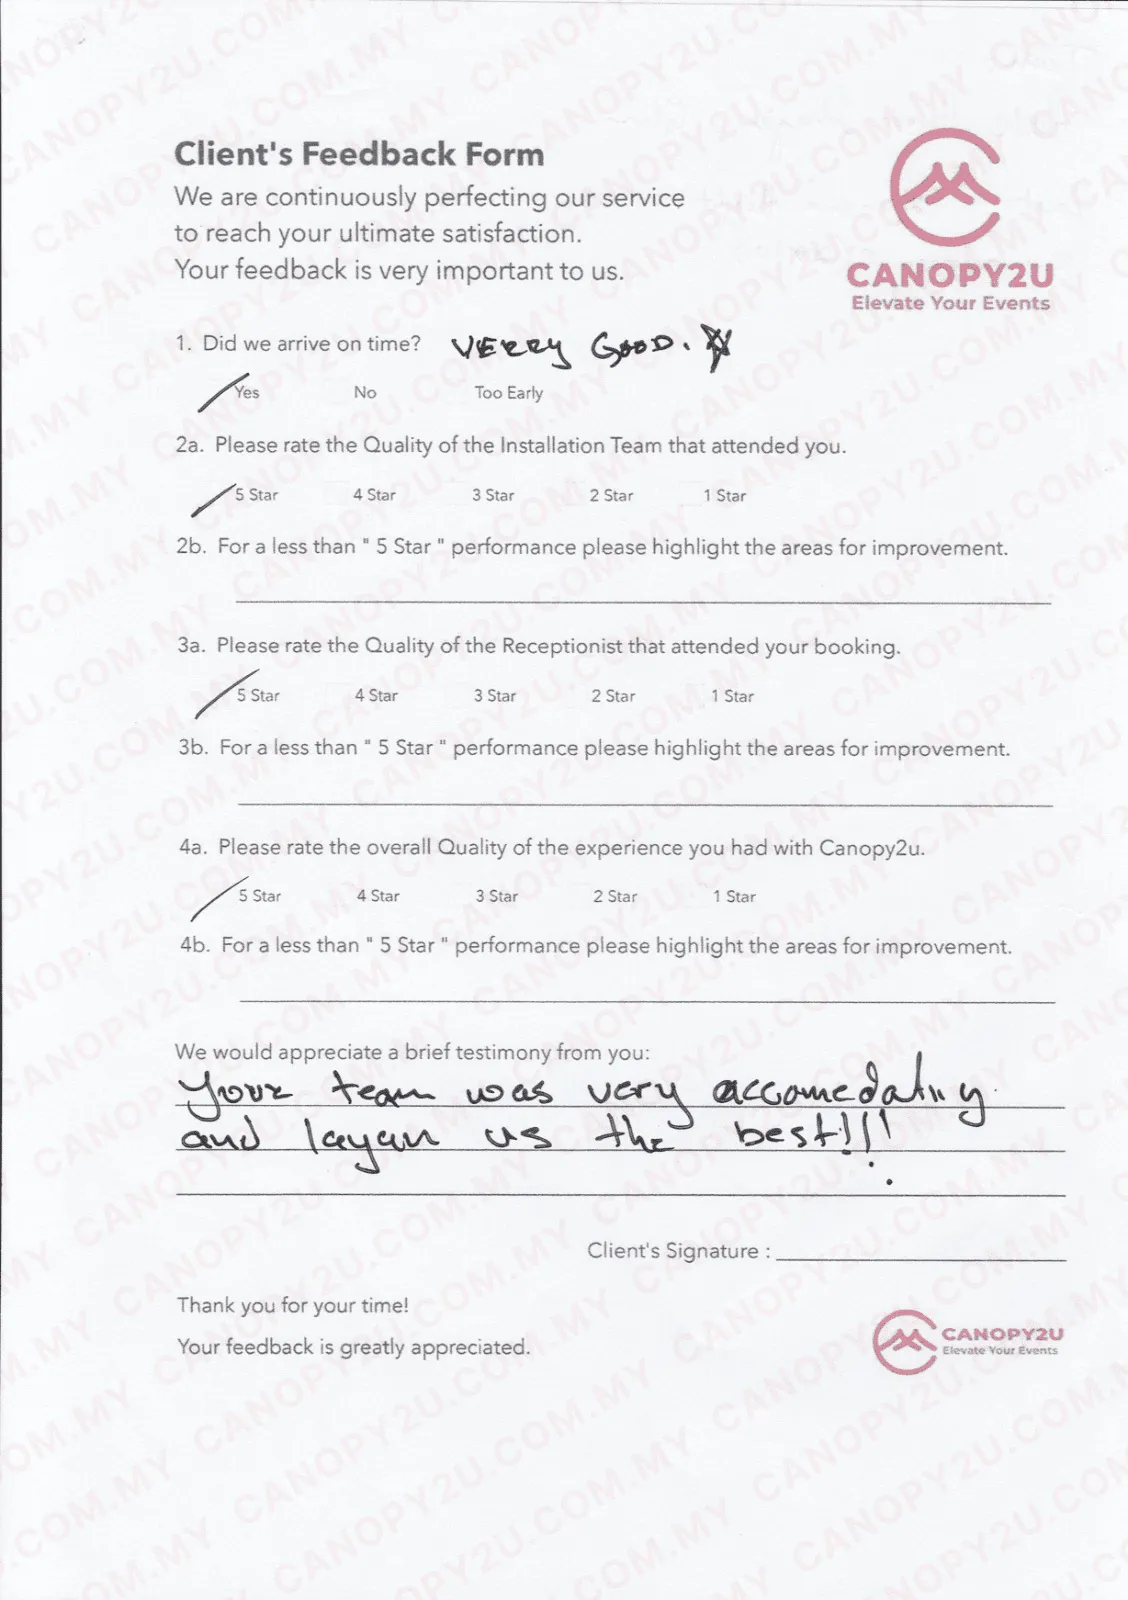 Client's Feedback Form
We are continuously perfecting our service
to reach your ultimate satisfaction.
Your feedback is very important to us.
CANOPY2U
Elevate Your Events
1. Did we arrive on time? VERRY GOOD.
Yes No Too Early
2a. Please rate the Quality of the Installation Team that attended you.
5 Star 4 Star 3 Star 2 Star 1 Star
2b. For a less than " 5 Star " performance please highlight the areas for improvement.
3a. Please rate the Quality of the Receptionist that attended your booking.
5 Star 4 Star 3 Star 2 Star 1 Star
3b. For a less than " 5 Star " performance please highlight the areas for improvement.
4a. Please rate the overall Quality of the experience you had with Canopy2u.
5 Star 4 Star 3 Star 2 Star 1 Star
4b. For a less than " 5 Star " performance please highlight the areas for improvement.
We would appreciate a brief testimony from you:
Your team was very accomedating
and layan us the best!!!
Client's Signature :
Thank you for your time!
Your feedback is greatly appreciated.
CANOPY2U
Elevate Your Events